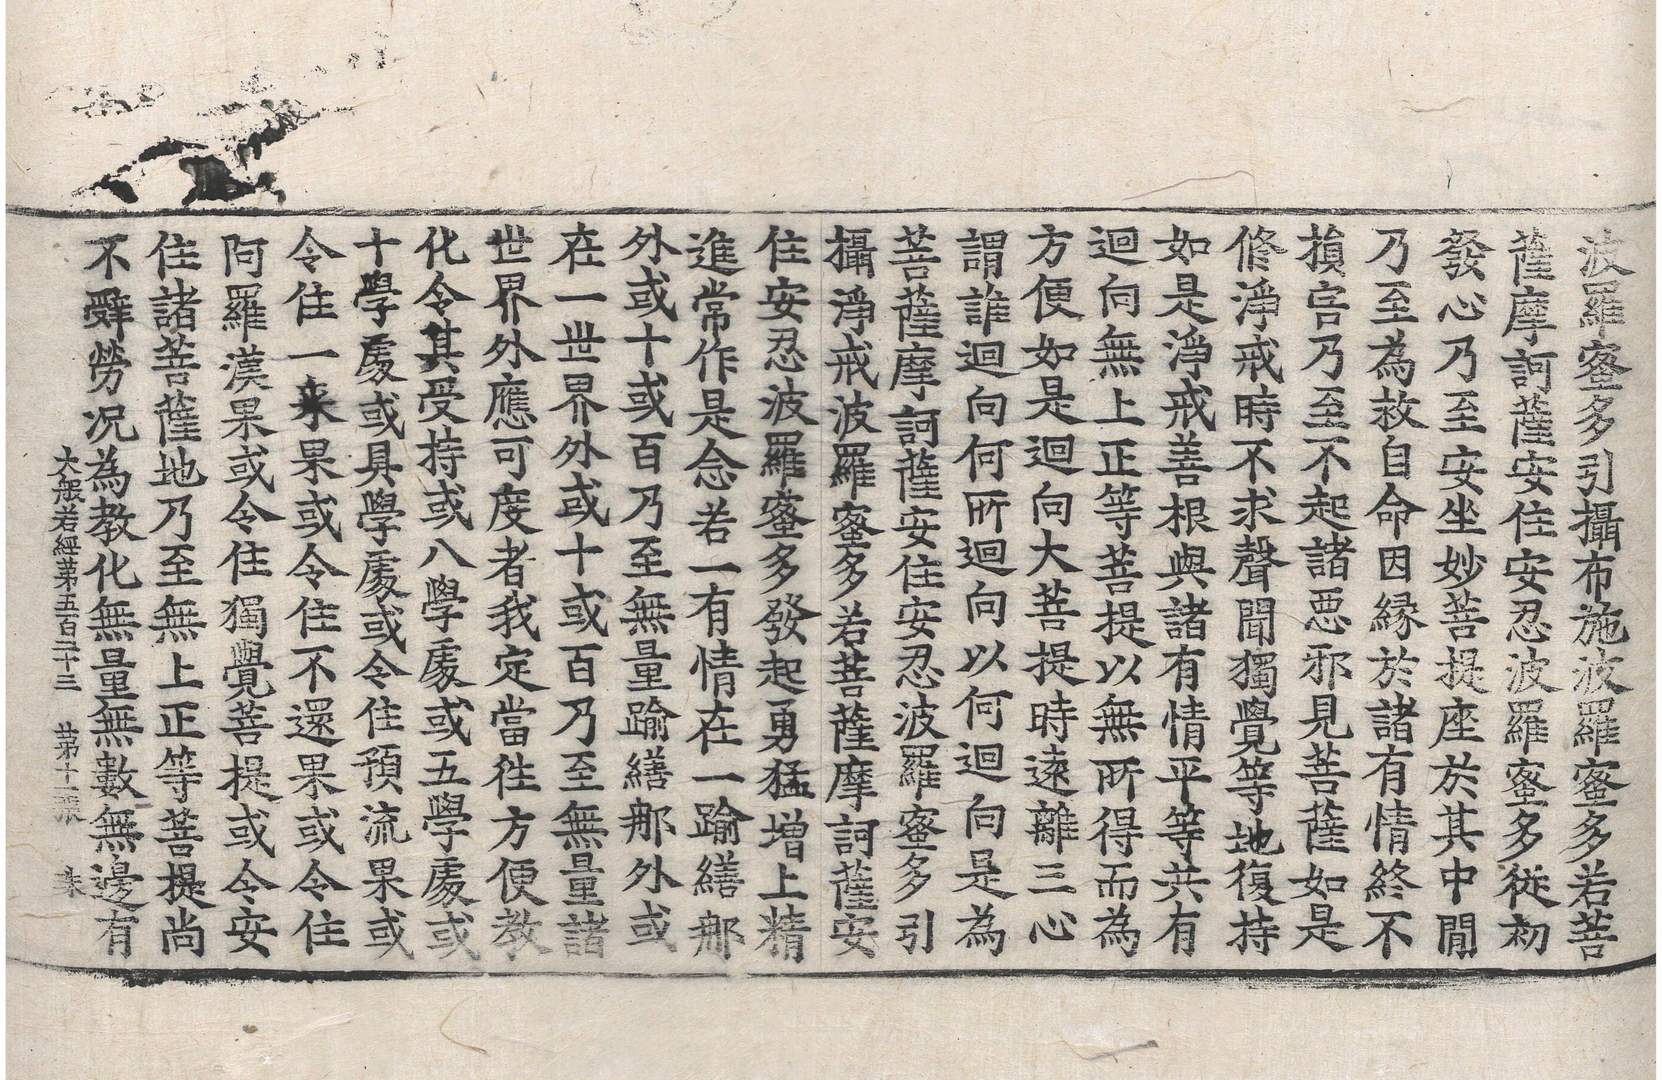 波羅蜜多引攝布施波羅蜜多若菩
薩摩訶薩安住安忍波羅蜜多從初
發心乃至安坐妙菩提座於其中閒
乃至為救自命因縁於諸有情終不
損害乃至不起諸惡邪見菩薩如是
修淨戒時不求聲聞獨覺等地復持
如是淨戒善根與諸有情平等共有
迴向無上正等菩提以無所得而為
方便如是迴向大菩提時遠離三心
謂誰迴向何所迴向以何迴向是為
菩薩摩訶薩安住安忍波羅蜜多引
攝淨戒波羅蜜多若菩薩摩訶薩安
住安忍波羅蜜多發起勇猛增上精
進常作是念若一有情在一踰繕那
外或十或百乃至無量踰繕那外或
在一世界外或十或百乃至無量諸
世界外應可度者我定當往方便教
化令其受持或八學處或五學處或
十學處或具學處或令住預流果或
令住一来果或令住不還果或令住
阿羅漢果或令住獨覺菩提或令安
住諸菩薩地乃至無上正等菩提尚
不辭勞況為教化無量無數無邊有
大般若經苐五百二十三 苐十二張